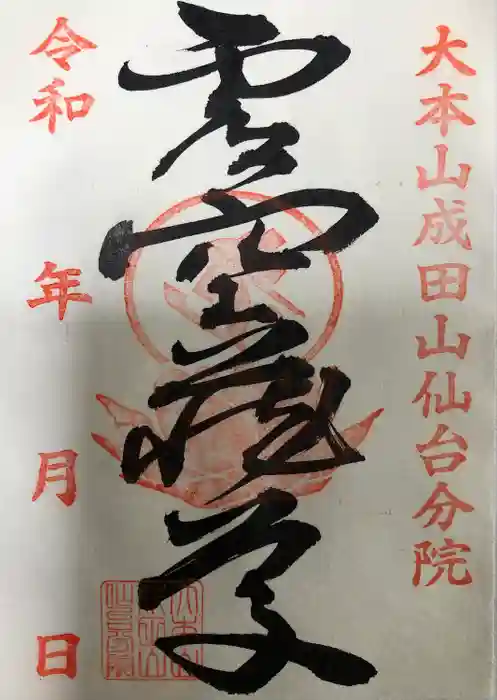 大本山成田山仙台分院
虚空蔵尊
令和 年 月 日